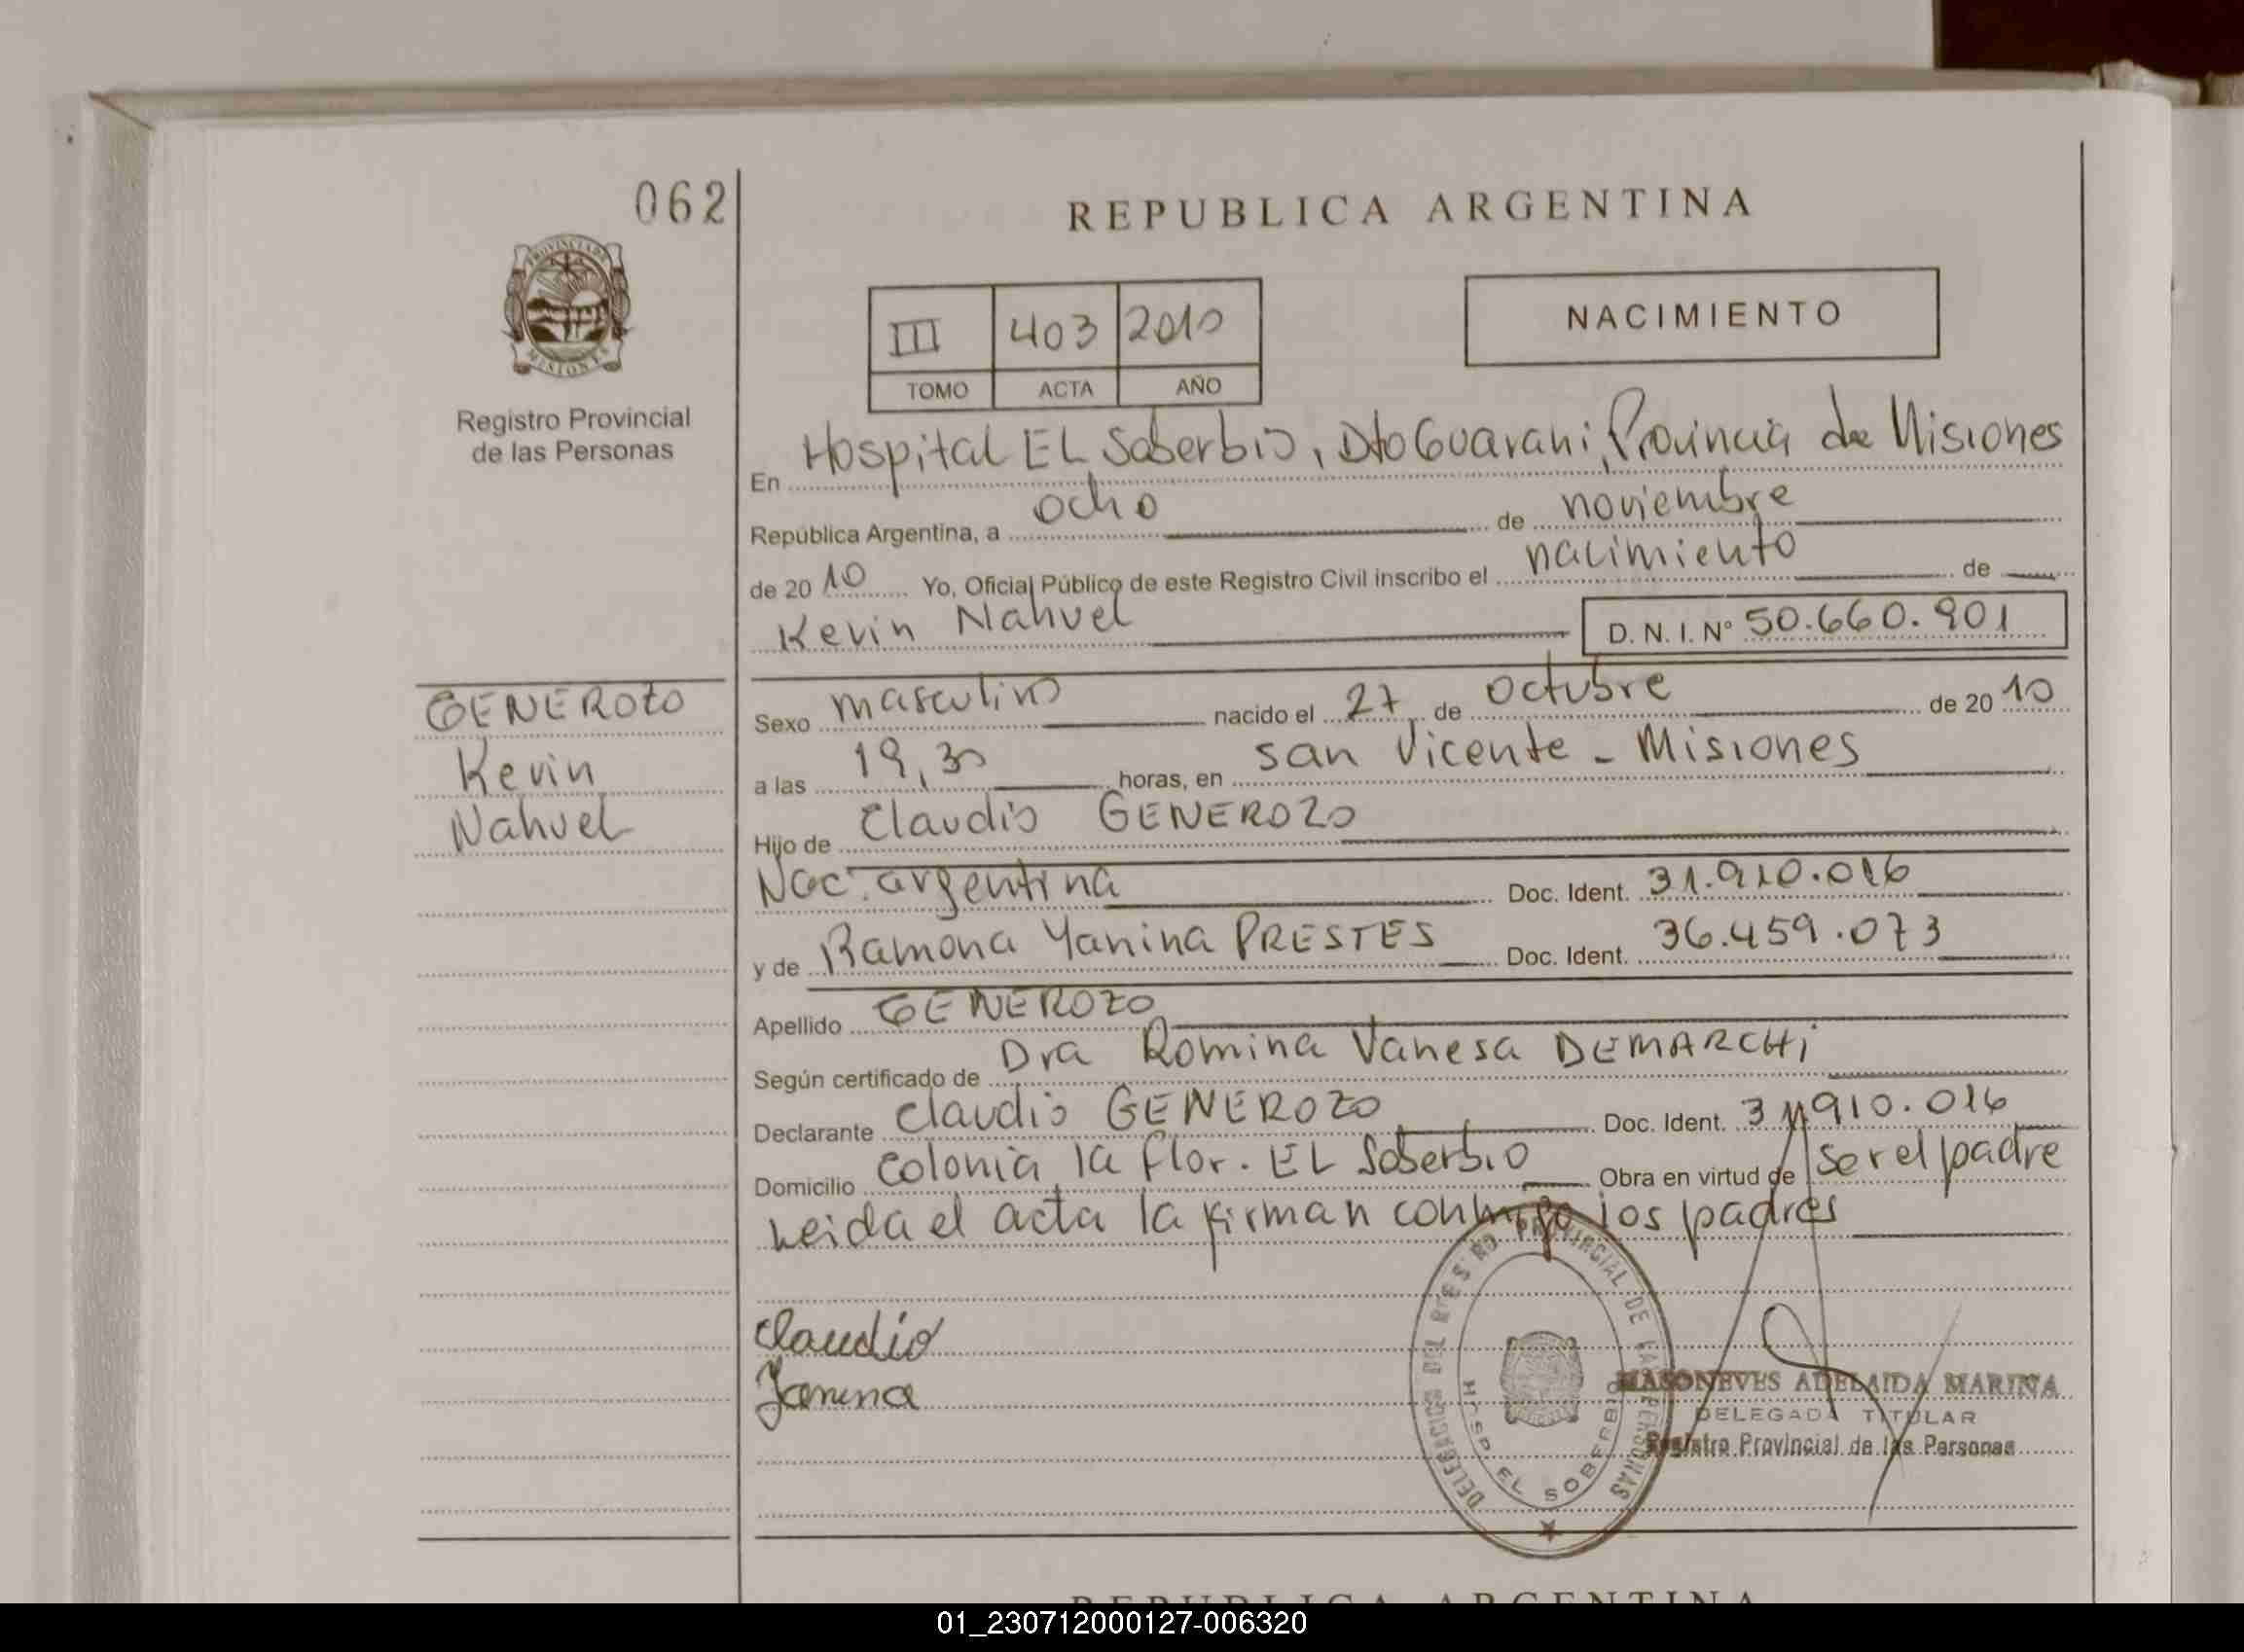 062
PROVINCIA DE
MISIONES
Registro Provincial
de las Personas
GENEROZO
Kevin
Nahuel
REPUBLICA ARGENTINA
III 403 2010
TOMO ACTA AÑO
NACIMIENTO
En Hospital EL Soberbio, Dto Guarani, Provincia de Misiones
República Argentina, a ocho de noviembre
de 2010 Yo, Oficial Público de este Registro Civil inscribo el nacimiento de
Kevin Nahuel D. N. I. Nº 50.660.901
Sexo masculino nacido el 27 de octubre de 2010
a las 19,30 horas, en san Vicente - Misiones
Hijo de Claudio GENEROZO
Nac. argentina Doc. Ident. 31.910.016
y de Ramona Yanina PRESTES Doc. Ident. 36.459.073
Apellido GENEROZO
Según certificado de Dra Romina Vanesa DEMARCHi
Declarante Claudio GENEROZO Doc. Ident. 31.910.016
Domicilio Colonia la flor. EL Soberbio Obra en virtud de ser el padre
Leida el acta la firman conmigo los padres
Claudio
Janina
DELEGACION DEL REGISTRO PROVINCIAL DE LAS PERSONAS
HOSP EL SOBERBIO
MASONEVES ADELAIDA MARINA
DELEGADA TITULAR
Registro Provincial de las Personas
REPUBLICA ARGENTINA
01_230712000127-006320